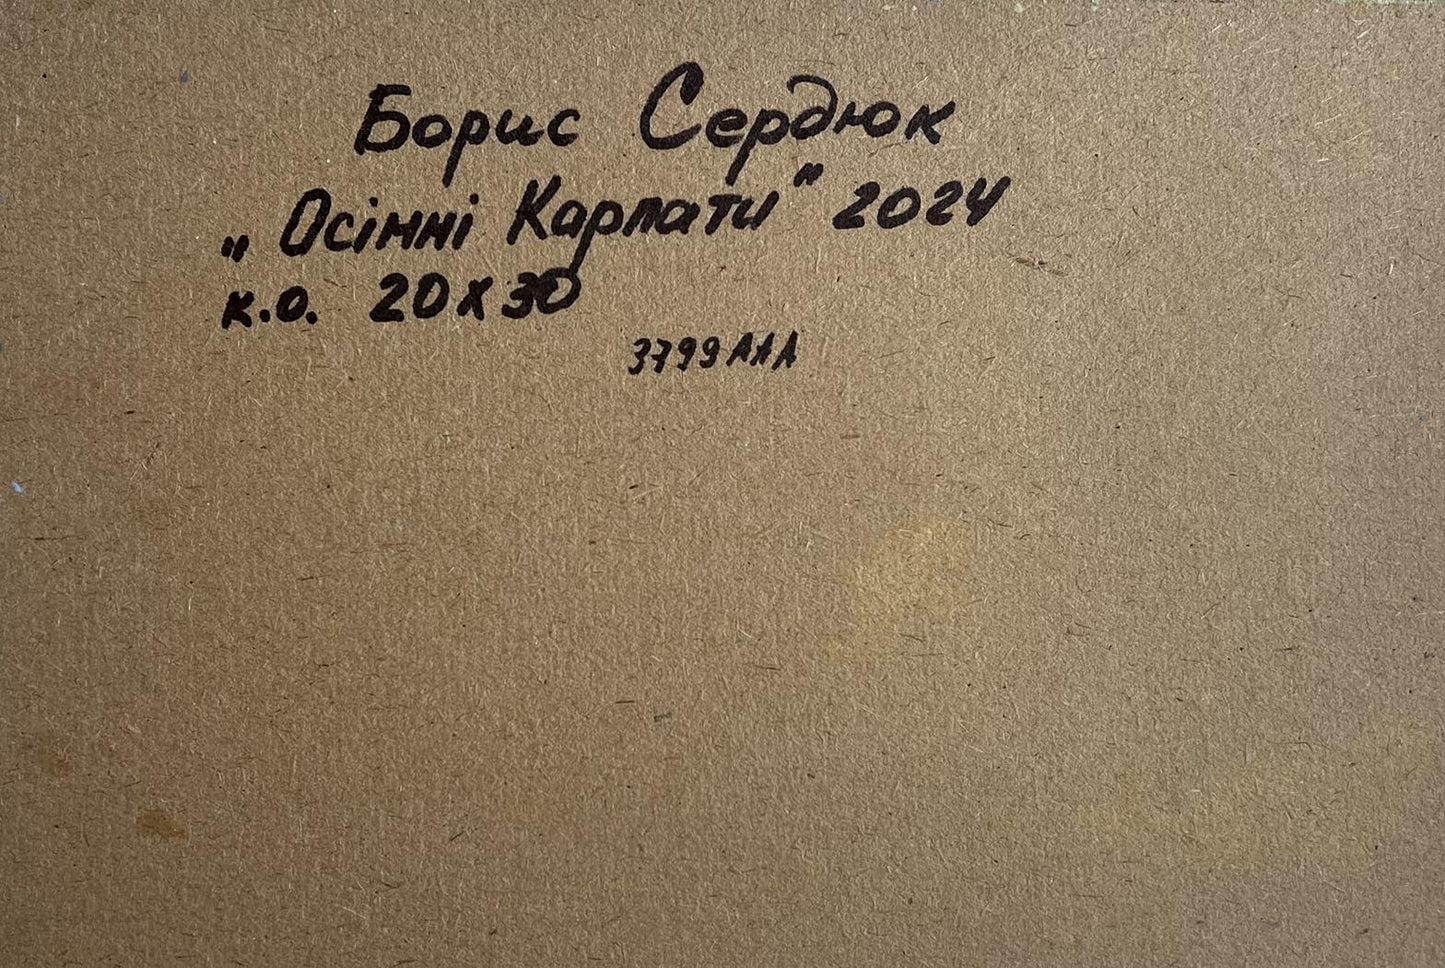 Борис Сердюк
„Осінні Карпати" 2024
к.о. 20х30
3799ААА